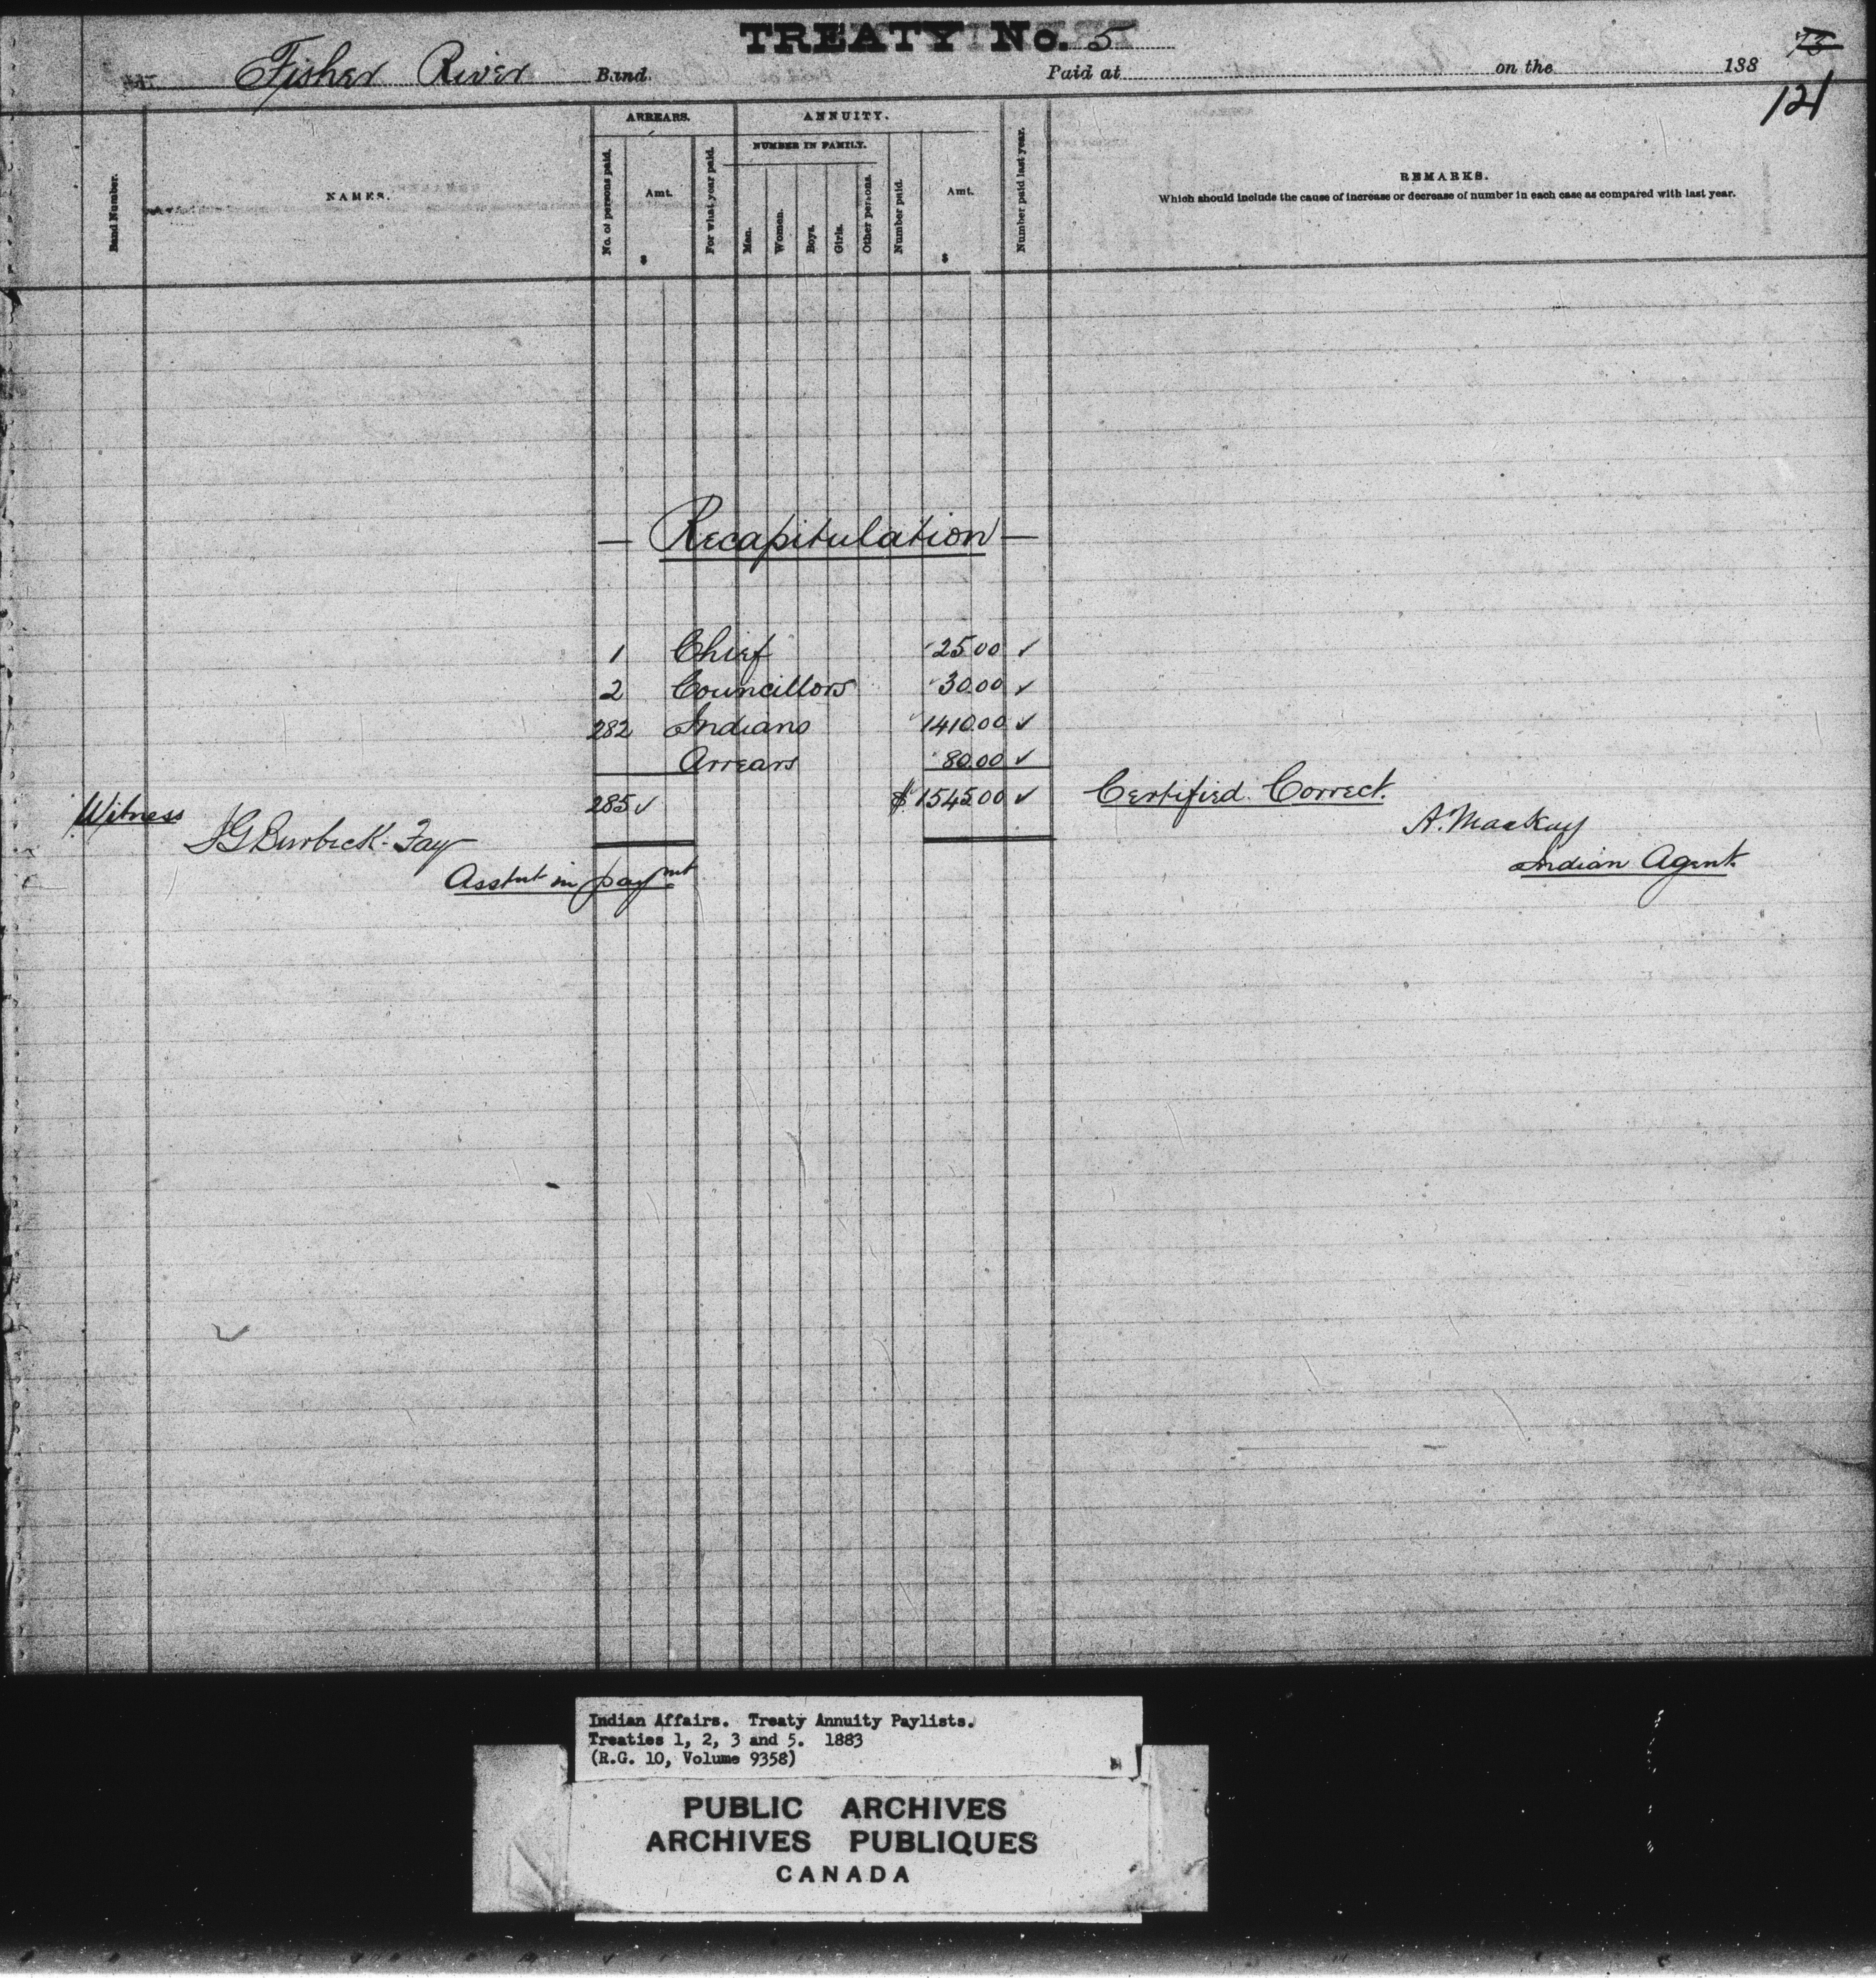 TREATY No. 5
73
Fisher River Band. Paid at on the 188
121
Band Number.
NAMES.
ARREARS.
No. of persons paid.
Amt.
$
For what year paid.
ANNUITY.
NUMBER IN FAMILY.
Men.
Women.
Boys.
Girls.
Other persons.
Number paid.
Amt.
$
Number paid last year.
REMARKS.
Which should include the cause of increase or decrease of number in each case as compared with last year.
— Recapitulation —
1 Chief 25.00 ✓
2 Councillors 30.00 ✓
282 Indians 1410.00 ✓
Arrears 80.00 ✓
285 ✓ $1545.00 ✓
Witness
Burbeck-Fay
Asstnt in paymt
Certified Correct.
A. MacKay
Indian Agent
Indian Affairs. Treaty Annuity Paylists.
Treaties 1, 2, 3 and 5. 1883
(R.G. 10, Volume 9358)
PUBLIC ARCHIVES
ARCHIVES PUBLIQUES
CANADA